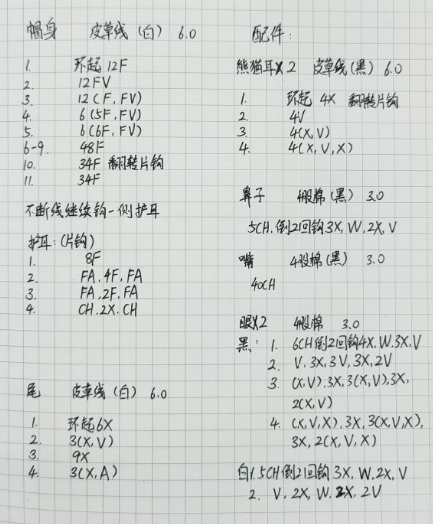 帽身 皮革线（白） 6.0
1. 环起12F
2. 12FV
3. 12(F, FV)
4. 6(5F, FV)
5. 6(6F, FV)
6-9. 48F
10. 34F 翻转片钩
11. 34F
不断线继续钩一侧护耳
护耳:(片钩)
1. 8F
2. FA. 4F, FA
3. FA. 2F. FA
4. CH. 2X. CH
尾 皮革线（白） 6.0
1. 环起6X
2. 3(X, V)
3. 9X
4. 3(X, A)
配件:
熊猫耳X2 皮革线（黑） 6.0
1. 环起 4X 翻转片钩
2. 4V
3. 4(X, V)
4. 4(X, V, X)
鼻子 4股棉（黑） 3.0
5CH. 倒2回钩3X, W, 2X, V
嘴 4股棉（黑） 3.0
40CH
眼X2 4股棉 3.0
黑: 1. 6CH倒2回钩4X, W. 3X, V
2. V. 3X, 3V, 3X, 2V
3. (X, V). 3X, 3(X, V), 3X,
2(X, V)
4. (X, V, X). 3X, 3(X, V, X),
3X, 2(X, V, X)
白1. 5CH倒2回钩 3X, W. 2X, V
2. V, 2X, W. 2X, 2V